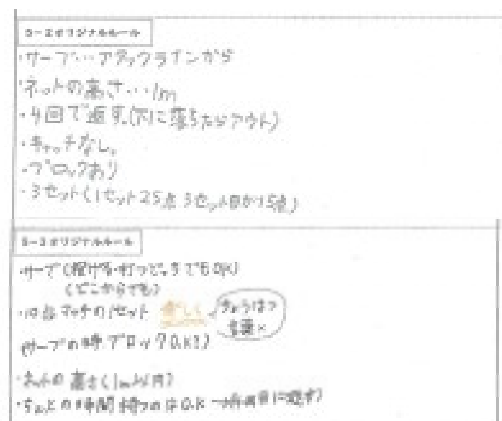 5-2オリジナルルール
・サーブ…アタックラインから
・ネットの高さ…1m
・4回で返す。(下に落ちたらアウト)
・キャッチなし。
・ブロックあり
・3セット(1セット25点 3セット目が15点)
5-3オリジナルルール
・サーブ(投げる・打つどっちでもOK)
(どこからでも)
・10点マッチの1セット 楽しく ちょうはつ
言葉×
(サーブの時ブロックO.K!)
・ネットの高さ(1m以内)
・ちょっとの時間持つのはO.K